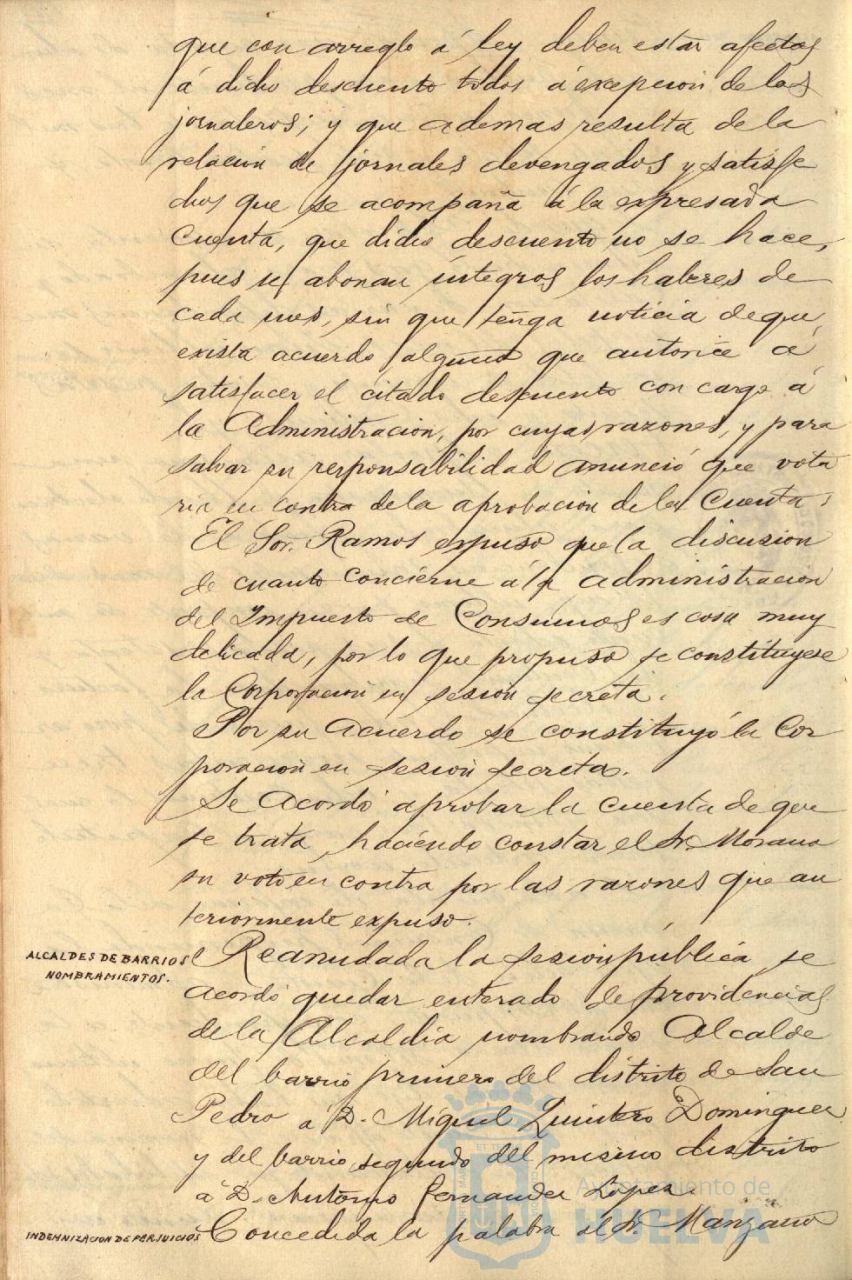 que con arreglo á ley deben estar afectos
á dicho descuento todos á excepcion de los
jornaleros; y que ademas resulta de la
relacion de jornales devengados y satisfe
chos que se acompaña á la expresada
Cuenta, que dicho descuento no se hace,
pues se abonan íntegros los haberes de
cada mes, sin que tenga noticia de que
exista acuerdo alguno que autorice á
satisfacer el citado descuento con cargo á
la Administracion, por cuyas razones, y para
salvar su responsabilidad anunció que vota
ria en contra de la aprobacion de la Cuenta.
El Sor. Ramos expuso que la discusion
de cuanto concierne á la administracion
del Impuesto de Consumos es cosa muy
delicada, por lo que propuso se constituyese
la Corporacion en sesion secreta.
Por su acuerdo se constituyó la Cor
poracion en sesion secreta.
Se acordó aprobar la cuenta de que
se trata, haciendo constar el Sr. Morano
su voto en contra por las razones que an
teriormente expuso.
ALCALDES DE BARRIOS
NOMBRAMIENTOS.
Reanudada la sesion pública, se
acordó quedar enterado de providencias
de la Alcaldia nombrando Alcalde
del barrio primero del distrito de San
Pedro á D. Miguel Quintero Dominguez
y del barrio segundo del mismo distrito
á D. Antonio Fernandez Lopez.
INDEMNIZACION DE PERJUICIOS
Concedida la palabra al Sr. Manzano
Ayuntamiento de
HUELVA